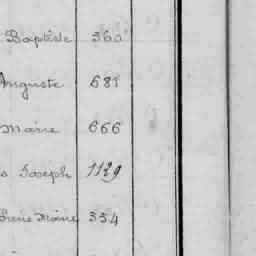 Baptiste 360
Auguste 681
Marie 666
s Joseph 1129
Marie 354